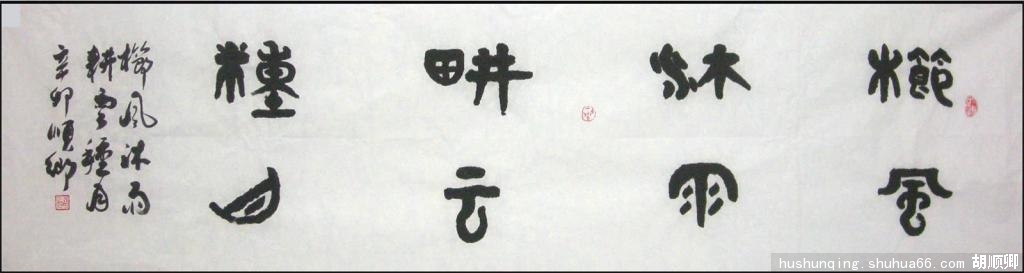 櫛風
沐雨
畊云
種月
櫛風沐雨
耕雲種月
辛卯順卿
hushunqing.shuhua66.com 胡顺卿